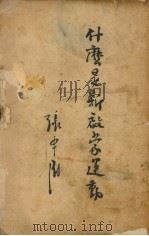 什麽是新啟蒙運動
張申府